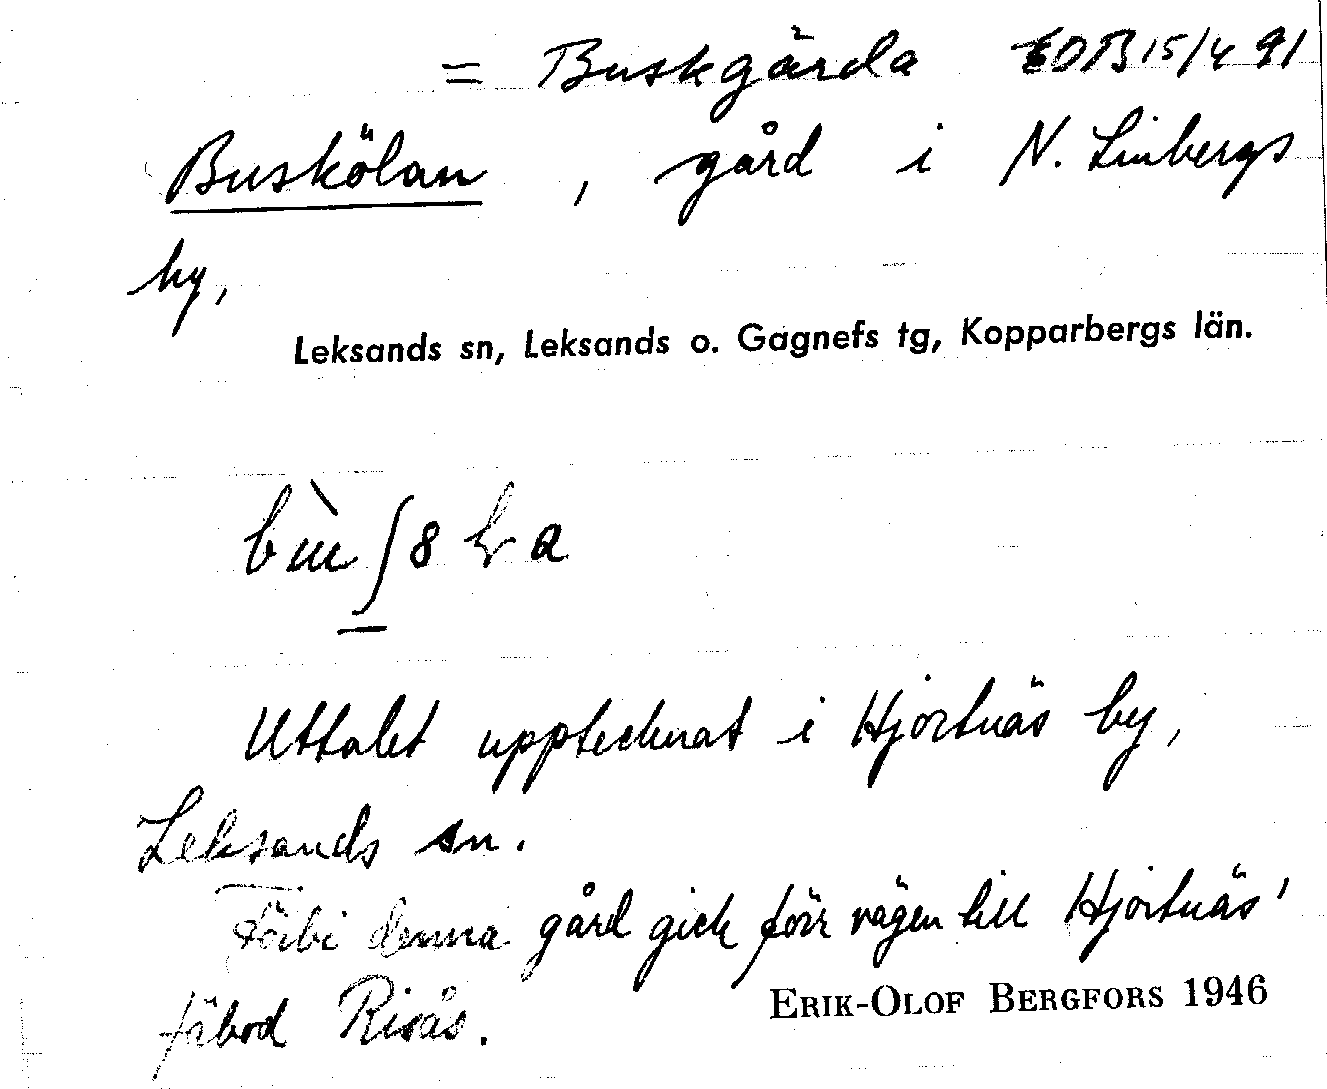 = Buskgärda EOB 15/4 91
Buskölan, gård i N. Limbergs
by,
Leksands sn, Leksands o. Gagnefs tg, Kopparbergs län.
Uttalet upptecknat i Hjortnäs by,
Leksands sn.
Förbi denna gård gick förr vägen till Hjortnäs'
fäbod Risås.
ERIK-OLOF BERGFORS 1946